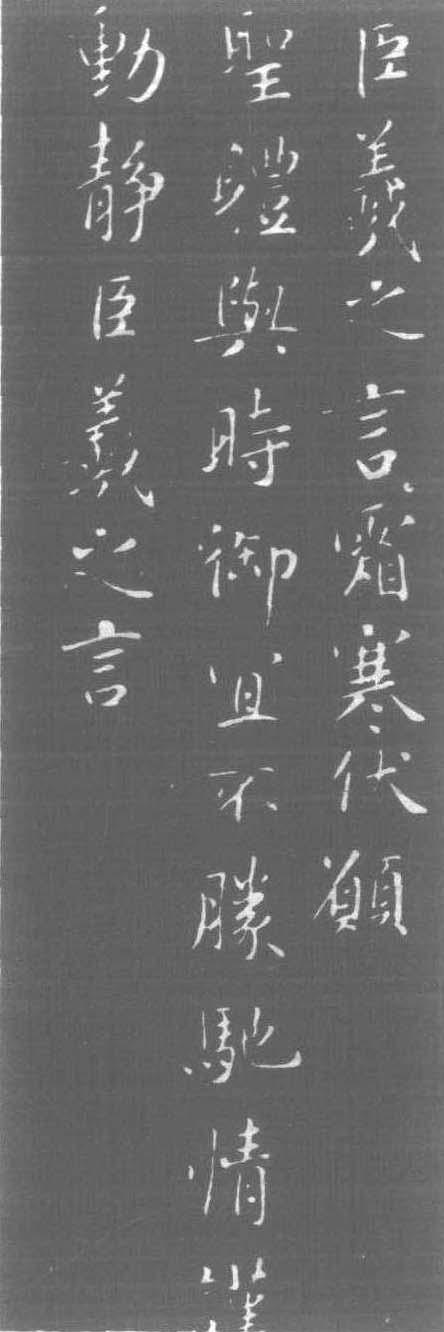 臣羲之言霜寒伏願
聖體與時御宜不勝馳情
動靜臣羲之言